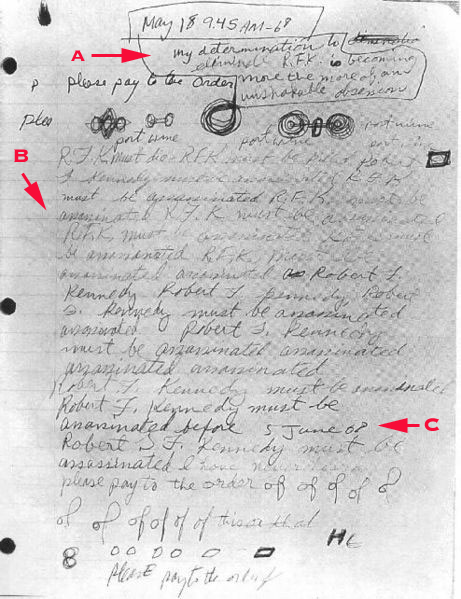 May 18 9.45 AM-68
A
my determination to
eliminate R.F.K. is becoming
more the more of an
unshakable obsession
P please pay to the order
port wine port wine port wine
B
R.F.K. must die - R.F.K. must be
F Kennedy must be assassinated R.F.K.
must be assassinated R.F.K. must be
assassinated R.F.K. must be assassinated
R.F.K. must be assassinated R.F.K. must
be assassinated R.F.K. must be
assassinated assassinated Robert F.
Kennedy Robert F. Kennedy Robert
F. Kennedy must be assassinated
assassinated Robert F. Kennedy
must be assassinated assassinated
assassinated assassinated
Robert F. Kennedy must be assassinated
Robert F. Kennedy must be
assassinated before 5 June 68
C
Robert F. Kennedy must be
assassinated I have never
please pay to the order of of of of of
of of of of of of this or that
8
please pay to the order of